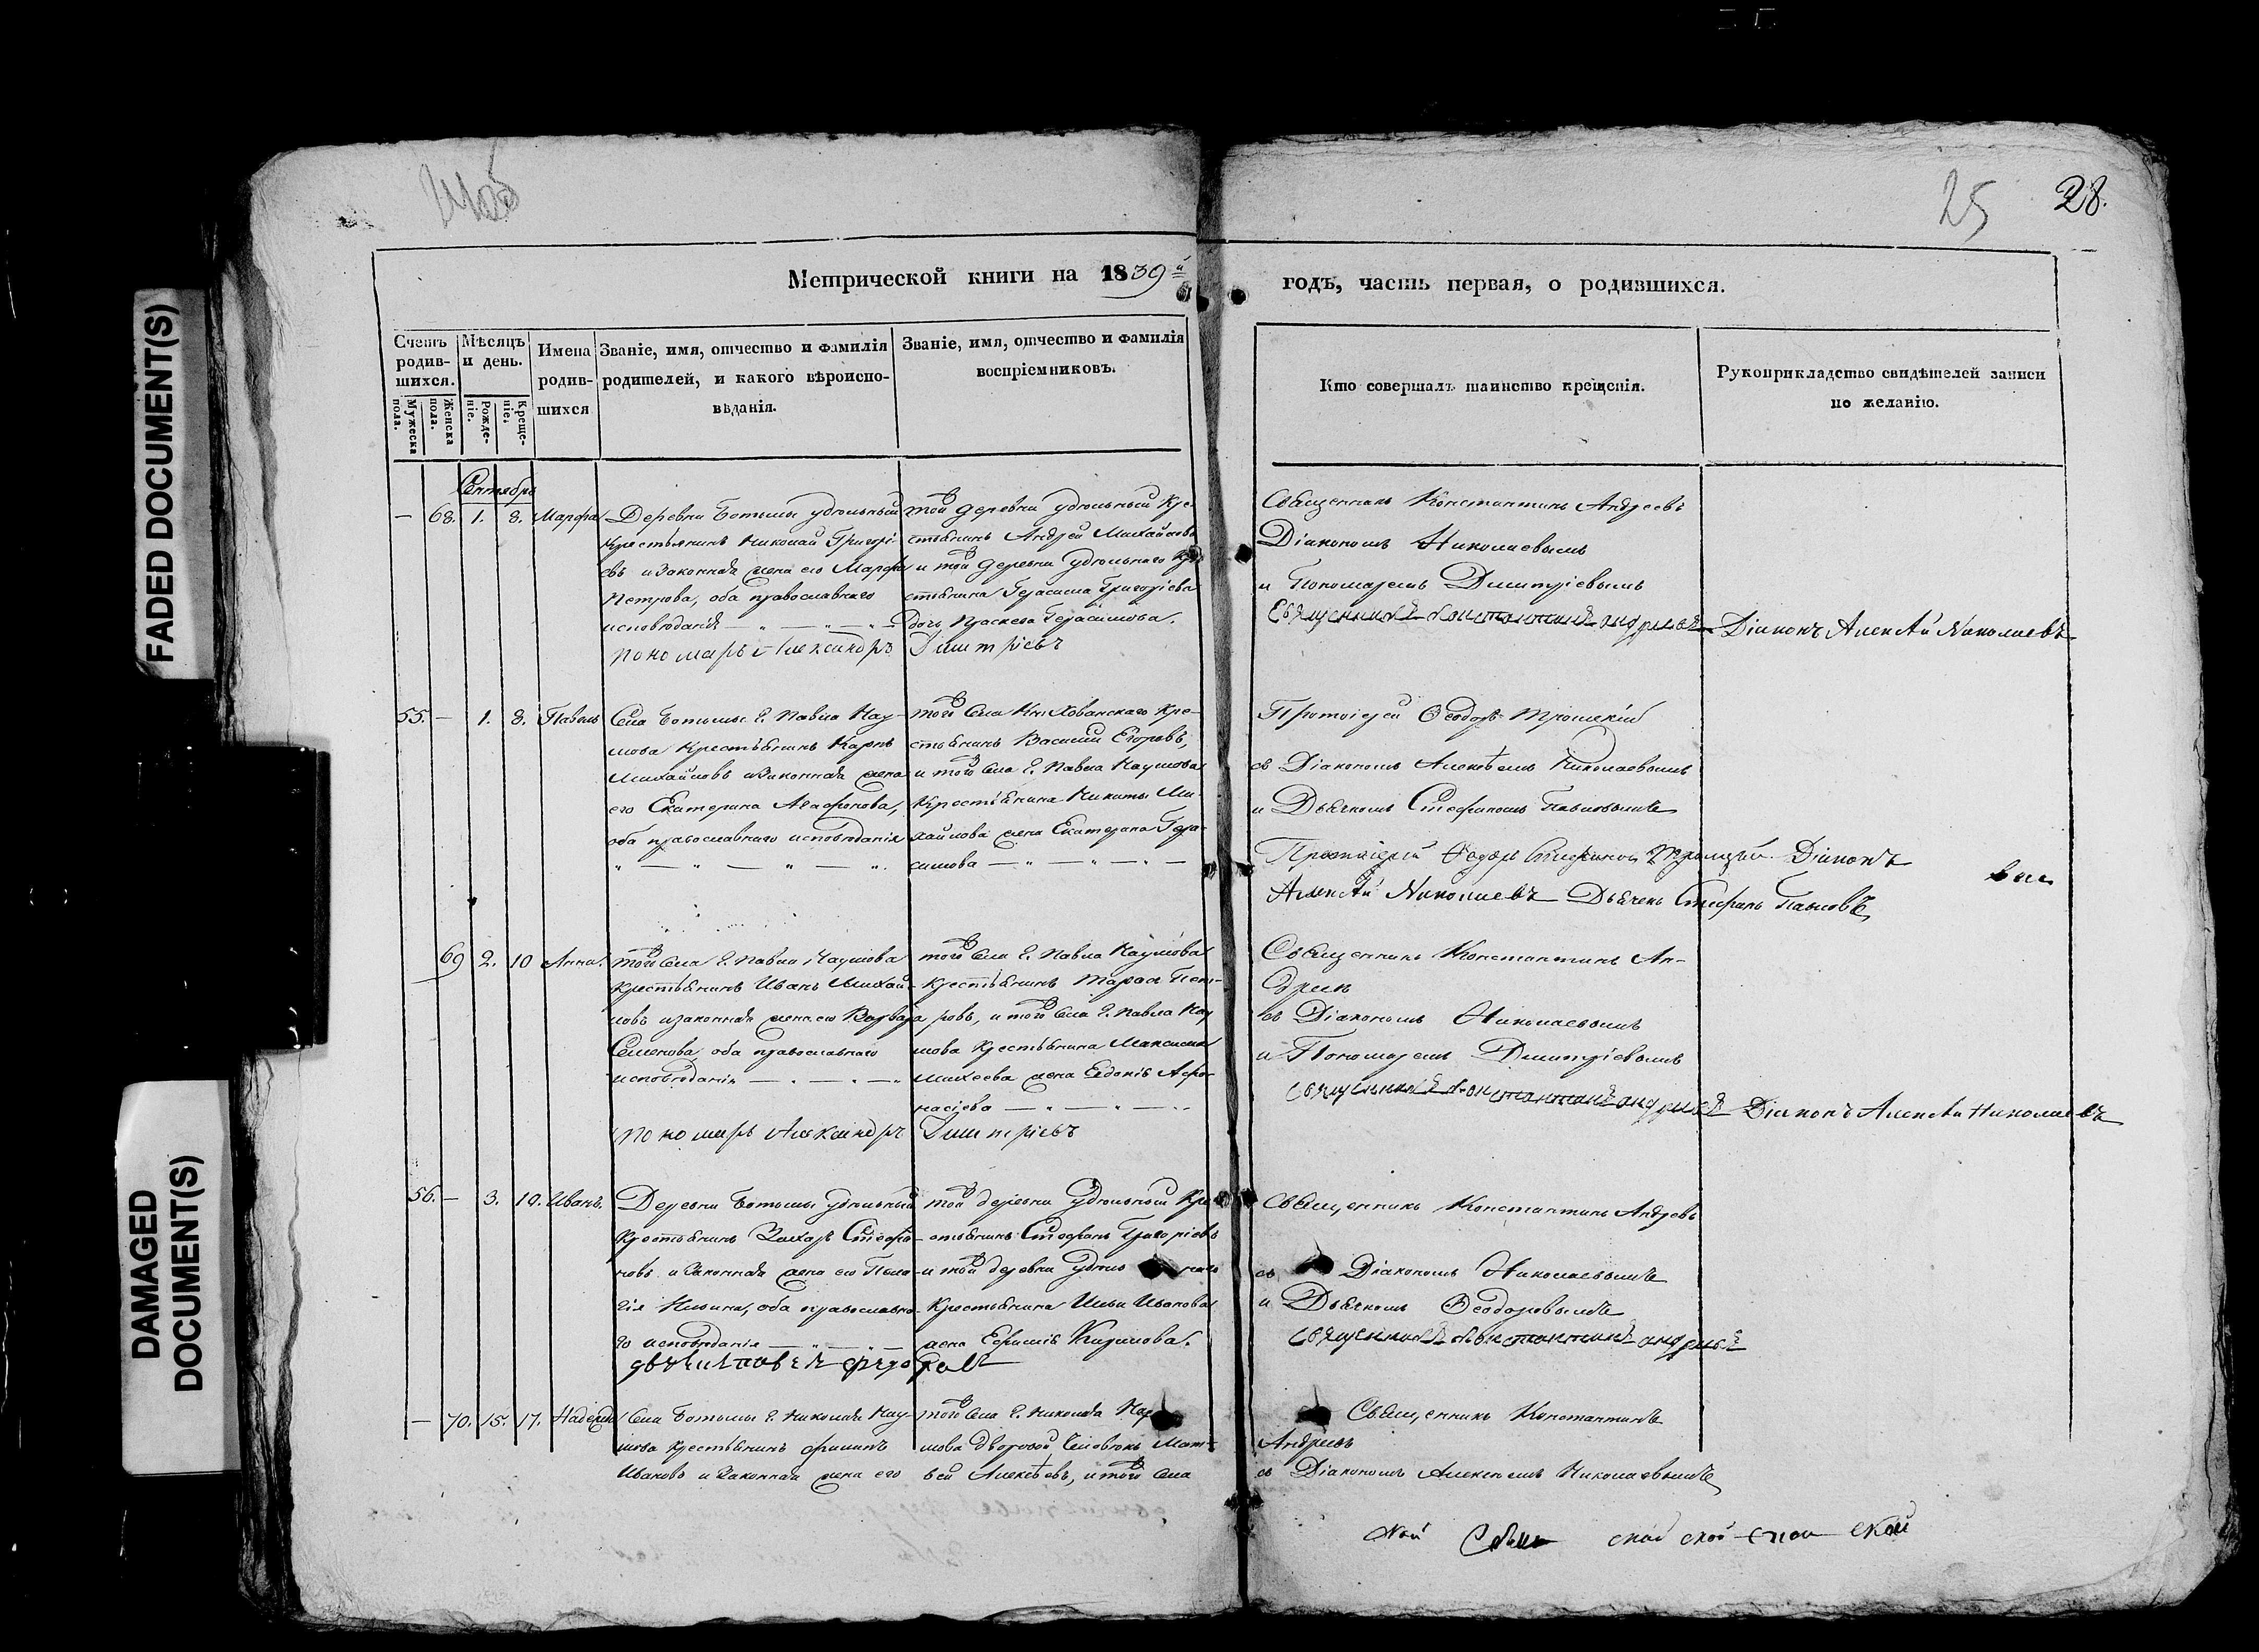 FADED DOCUMENT(S)
DAMAGED DOCUMENT(S)
25 28.
Метрической книги на 1839й годъ, часть первая, о родившихся.
Счетъ родив-шихся.
Мужеска пола.
Женска пола.
Мѣсяцъ и день.
Рожде-ніе.
Креще-ніе.
Имена родив-шихся
Званіе, имя, отчество и фамилія
родителей, и какого вѣроиспо-
вѣданія.
Званіе, имя, отчество и фамилія
воспріемниковъ.
Кто совершалъ таинство крещенія.
Рукоприкладство свидѣтелей записи
по желанію.
Сентябрь
— 68. 1. 8. Марфа
Деревни Ботьмы удѣльный
крестьянинъ Николай Григорі-
евъ и законная жена его Марфа
Петрова, оба православнаго
исповѣданія
пономарь Александръ Димитріевъ
той деревни удѣльный кре-
стьянинъ Андрей Михайловъ
и той деревни удѣльнаго кре-
стьянина Герасима Григоріева
дочь Праскева Герасимова.
Священникъ Константинъ Андреевъ
Діакономъ Николаевымъ
и Пономаремъ Димитріевымъ
Священникъ Константинъ Андреевъ Діаконъ Алексѣй Николаевъ
55. — 1. 8. Павелъ
Села Ботьмы Г. Павла Нау-
мова крестьянинъ Карпъ
Михайловъ и законная жена
его Екатерина Агафонова,
оба православнаго исповѣданія
того села Кн. Хованскаго кре-
стьянинъ Василій Егоровъ,
и того села Г. Павла Наумова
крестьянина Никиты Ми-
хайлова жена Екатерина Гера-
симова
Протоіерей Ѳеодоръ Троицкій
съ Діакономъ Алексѣемъ Николаевымъ
и Дьячкомъ Стефаномъ Павловымъ
Протоіерей Федоръ Троицкій Діаконъ
Алексѣй Николаевъ Дьячекъ Стефанъ Павловъ
69 2. 10 Анна.
того села Г. Павла Наумова
крестьянинъ Иванъ Михай-
ловъ и законная жена его Варвара
Семенова, оба православнаго
исповѣданія
пономарь Александръ Димитріевъ
того села Г. Павла Наумова
крестьянинъ Тарасъ Пет-
ровъ, и того села Г. Павла Нау
мова крестьянина Максима
Михеева жена Евдокія Афа-
насіева
Священникъ Константинъ Ан-
дреевъ
съ Діакономъ Николаевымъ
и Пономаремъ Димитріевымъ
Священникъ Константинъ Андреевъ Діаконъ Алексѣй Николаевъ
56. — 3. 10. Иванъ.
Деревни Ботьмы удѣльный
крестьянинъ Захаръ Стефа-
новъ и законная жена его Пела-
гія Ильина, оба православна-
го исповѣданія
дьячекъ Федоровъ
той деревни удѣльный кре-
стьянинъ Стефанъ Григоріевъ
и той деревни
крестьянина Ильи Иванова
жена Ефимія Кирилова.
Священникъ Константинъ Андреевъ
съ Діакономъ Николаевымъ
и Дьячкомъ Ѳеодоровымъ
Священникъ Константинъ Андреевъ
— 70. 15. 17. Надежда
Села Ботьмы Г. Николая Нау-
мова крестьянинъ Филипъ
Ивановъ и законная жена его
того села Г. Николая
мова дворовой человѣкъ Мат-
вей Алексѣевъ, и того села
Священникъ Константинъ
Андреевъ
съ Діакономъ Алексѣемъ Николаевымъ